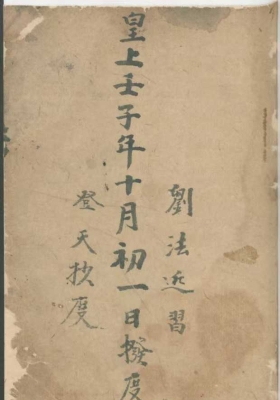 劉法習
皇上壬子年十月初一日撥度
登天抄度